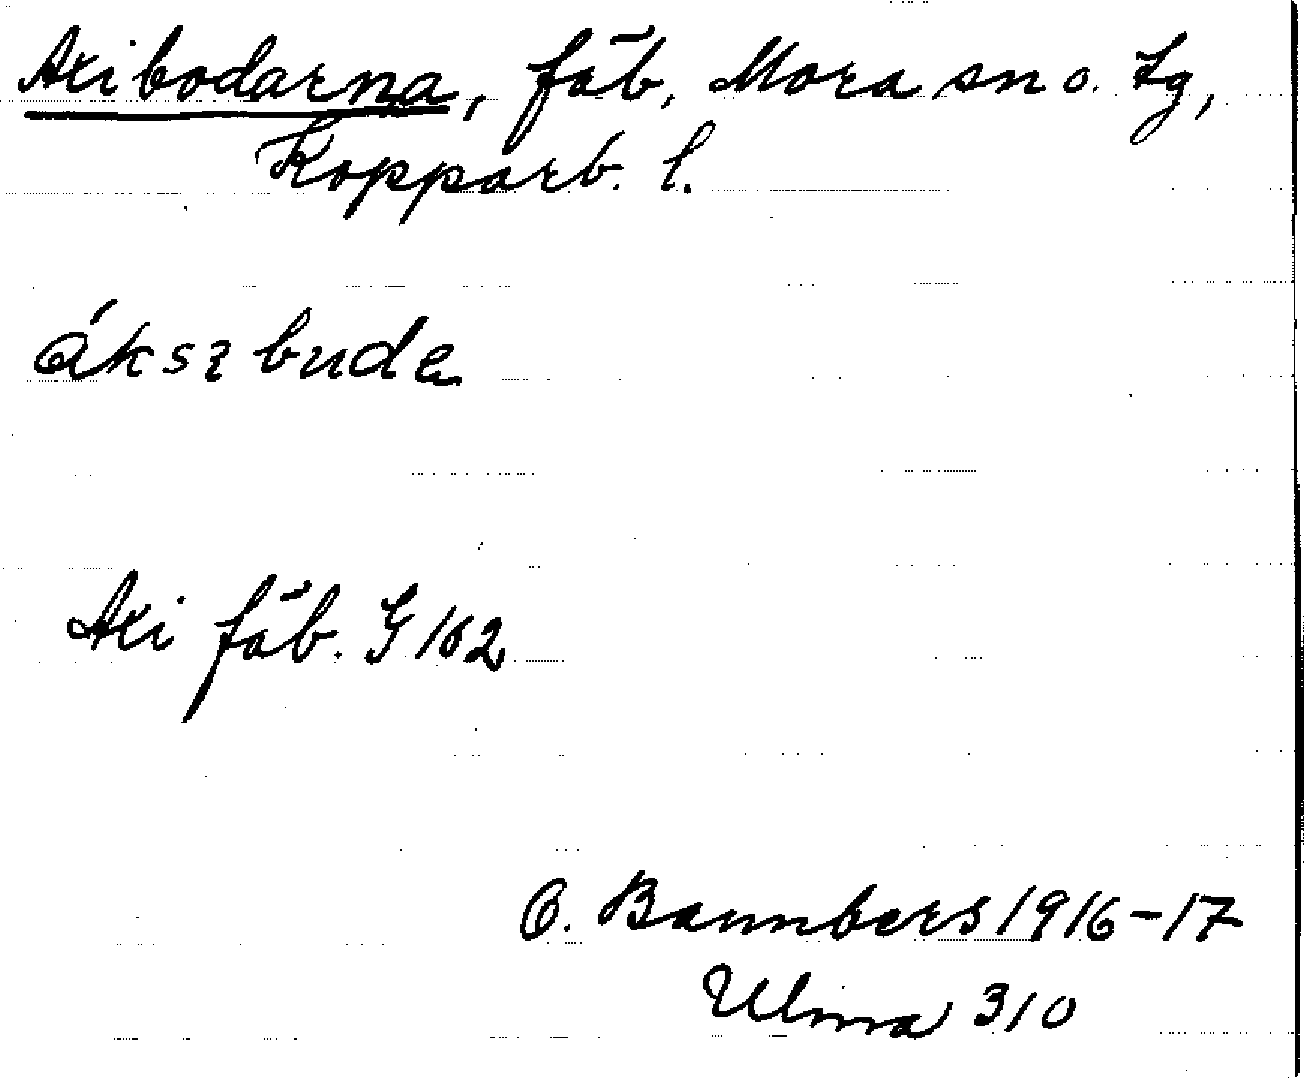 Axibodarna, fäb, Mora sn o. tg,
Kopparb. l.
áksɪbudɐ
Axi fäb. G 102
O. Bannbers 1916-17
Ulma 310